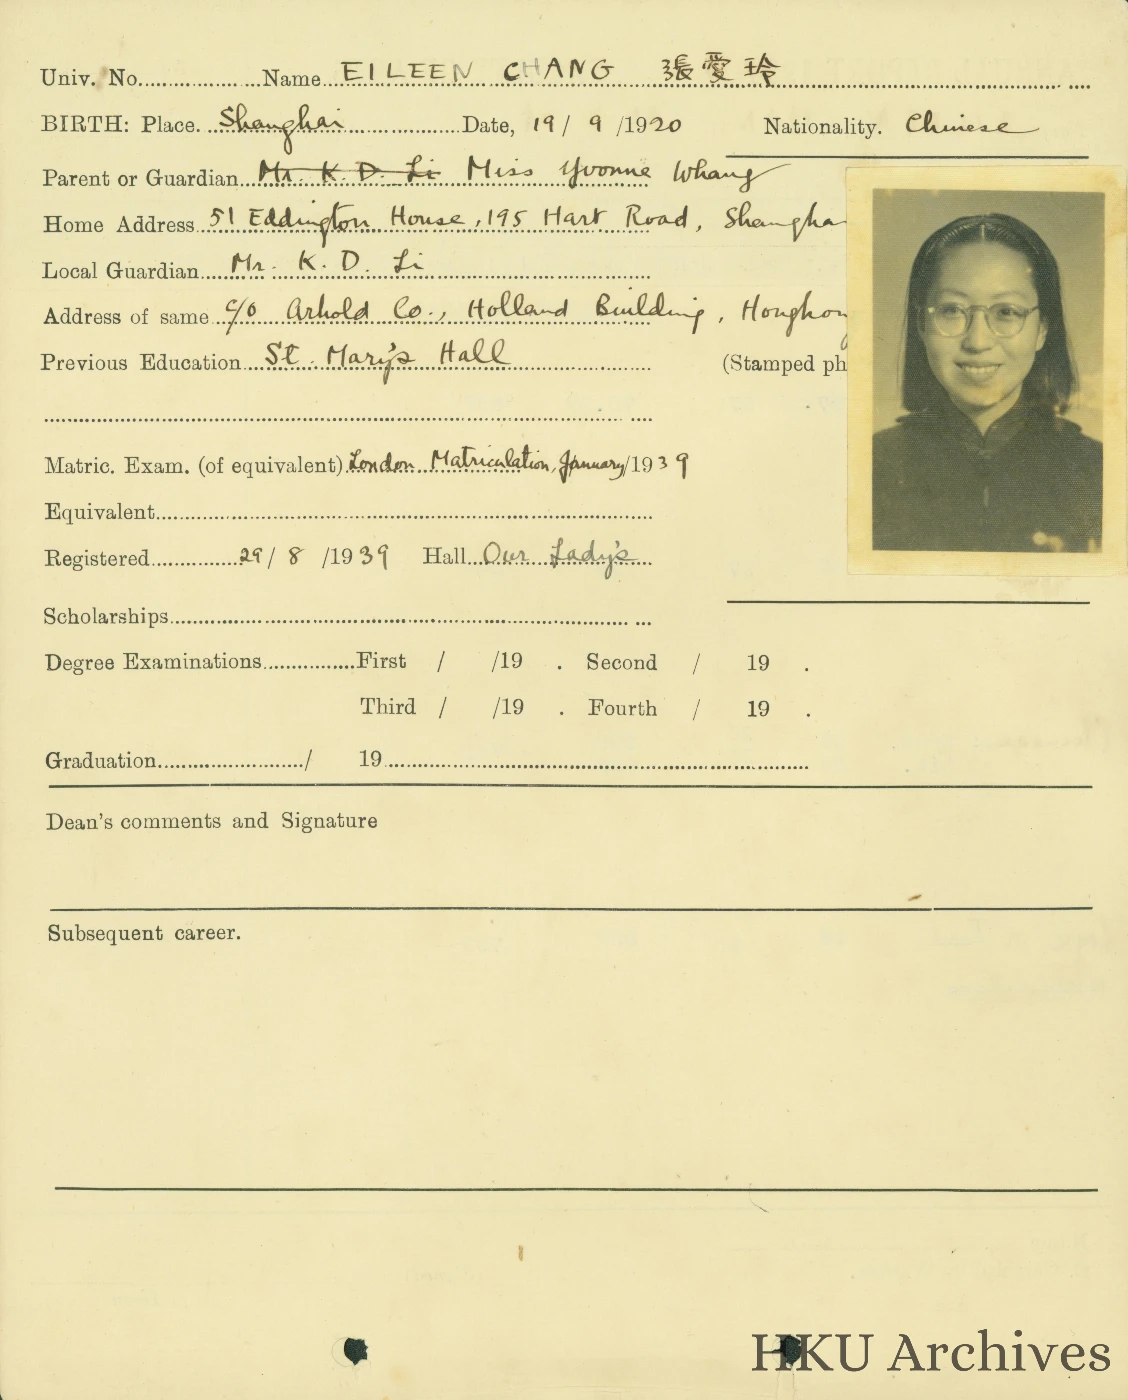 Univ. No. Name EILEEN CHANG 張愛玲
BIRTH: Place. Shanghai Date, 19/ 9 /1920 Nationality. Chinese
Parent or Guardian Mr. K. D. Li Miss Yvonne Whang
Home Address 51 Eddington House, 195 Hart Road, Shangha
Local Guardian Mr. K. D. Li
Address of same c/o Arnhold Co., Holland Building, Hongkon
Previous Education St. Mary's Hall (Stamped ph
Matric. Exam. (of equivalent) London Matriculation, January/1939
Equivalent
Registered 29/ 8 /1939 Hall Our Lady's
Scholarships
Degree Examinations First / /19 . Second / 19 .
Third / /19 . Fourth / 19 .
Graduation / 19
Dean's comments and Signature
Subsequent career.
HKU Archives